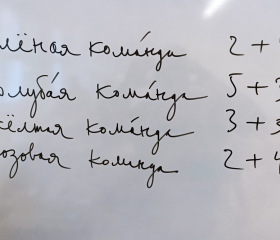 лёная кома́нда 2 +
олуба́я кома́нда 5 +
жёлтая кома́нда 3 +
розовая команда 2 + 4